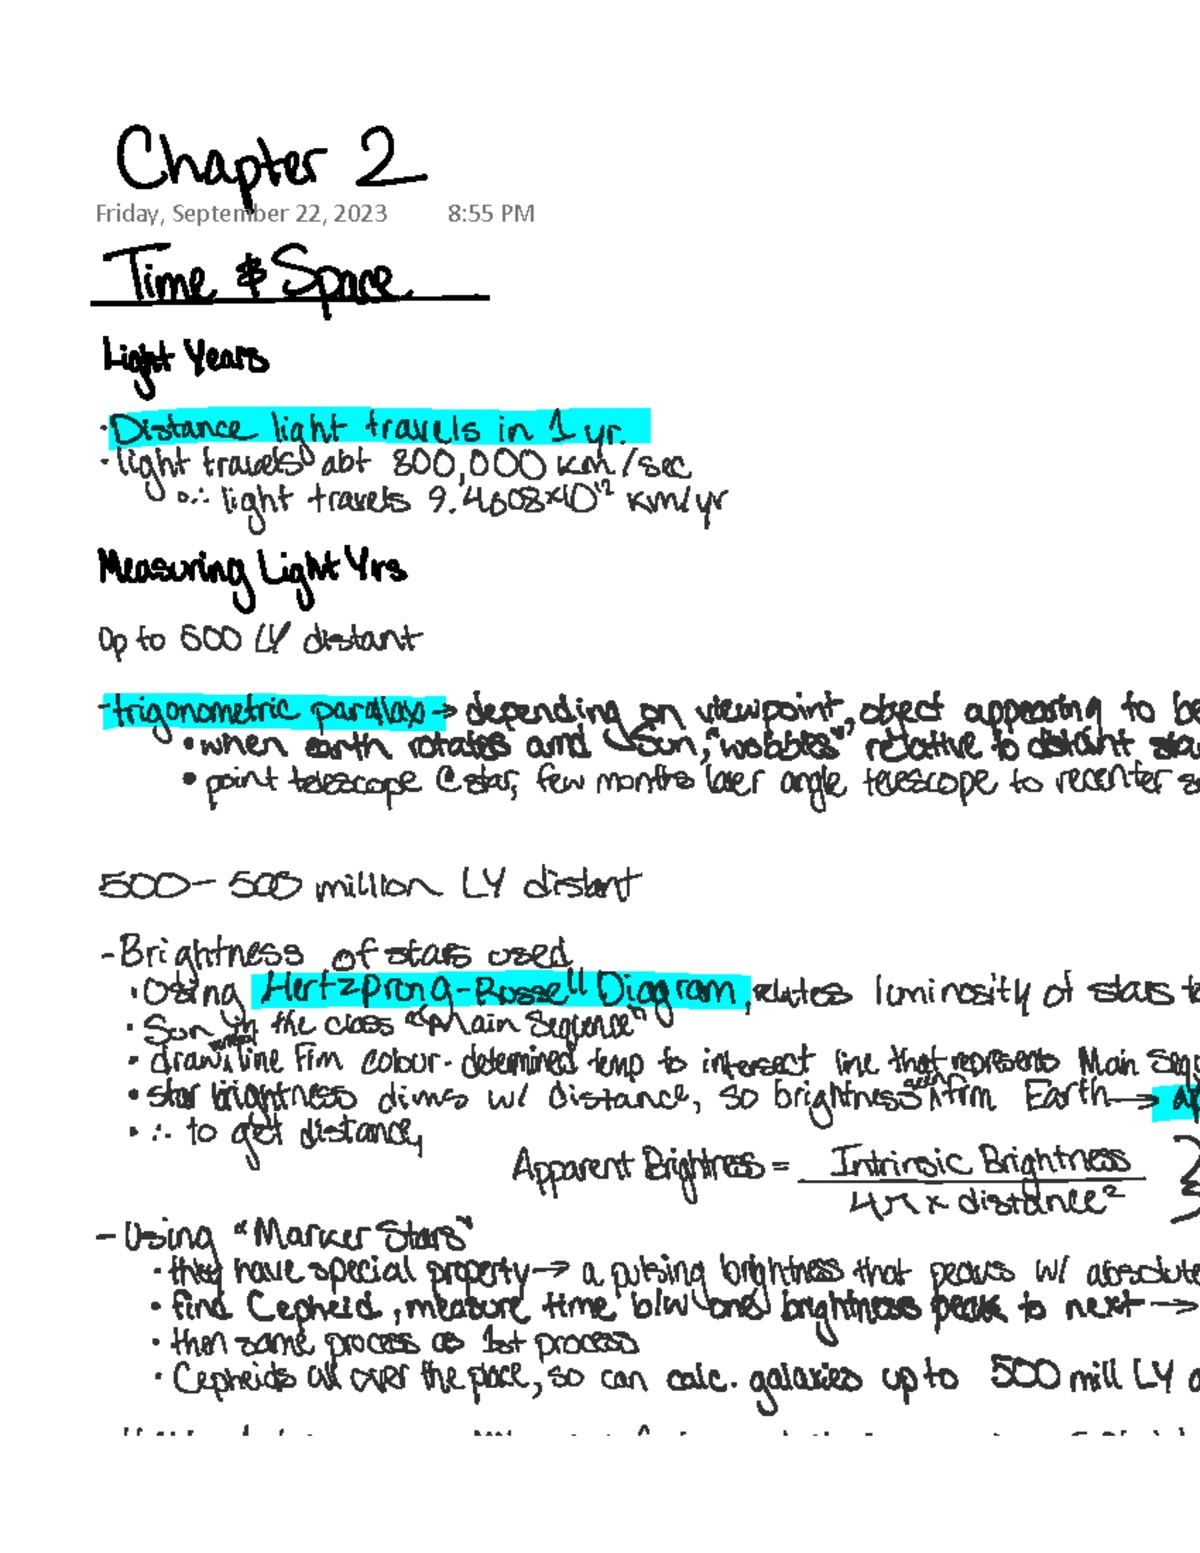 Chapter 2
Friday, September 22, 2023 8:55 PM
Time & Space
Light Years
· Distance light travels in 1 yr.
· light travels abt 300,000 km/sec
∴ light travels 9.4608×10¹² km/yr
Measuring Light Yrs
Up to 500 LY distant
- trigonometric paralax → depending on viewpoint, object appearing to be
• when earth rotates arnd Sun, "wobbles" relative to distant
• point telescope @ star, few months later angle telescope to recenter
500 - 500 million LY distant
- Brightness of stars used
· Using Hertzprong-Russell Diagram, relates luminosity of stars
· Sun in the class "Main Sequence"
· draw line frm colour-determined temp to intersect line that represents Main Seq
• star brightness dims w/ distance, so brightness seen frm Earth →
• ∴ to get distance,
Apparent Brightness = Intrinsic Brightness
4π × distance²
- Using "Marker Stars"
· they have special property → a pulsing brightness that peaks w/ absolute
• find Cepheid, measure time b/w one brightness peak to next →
· then same process as 1st process
· Cepheids all over the place, so can calc. galaxies up to 500 mill LY